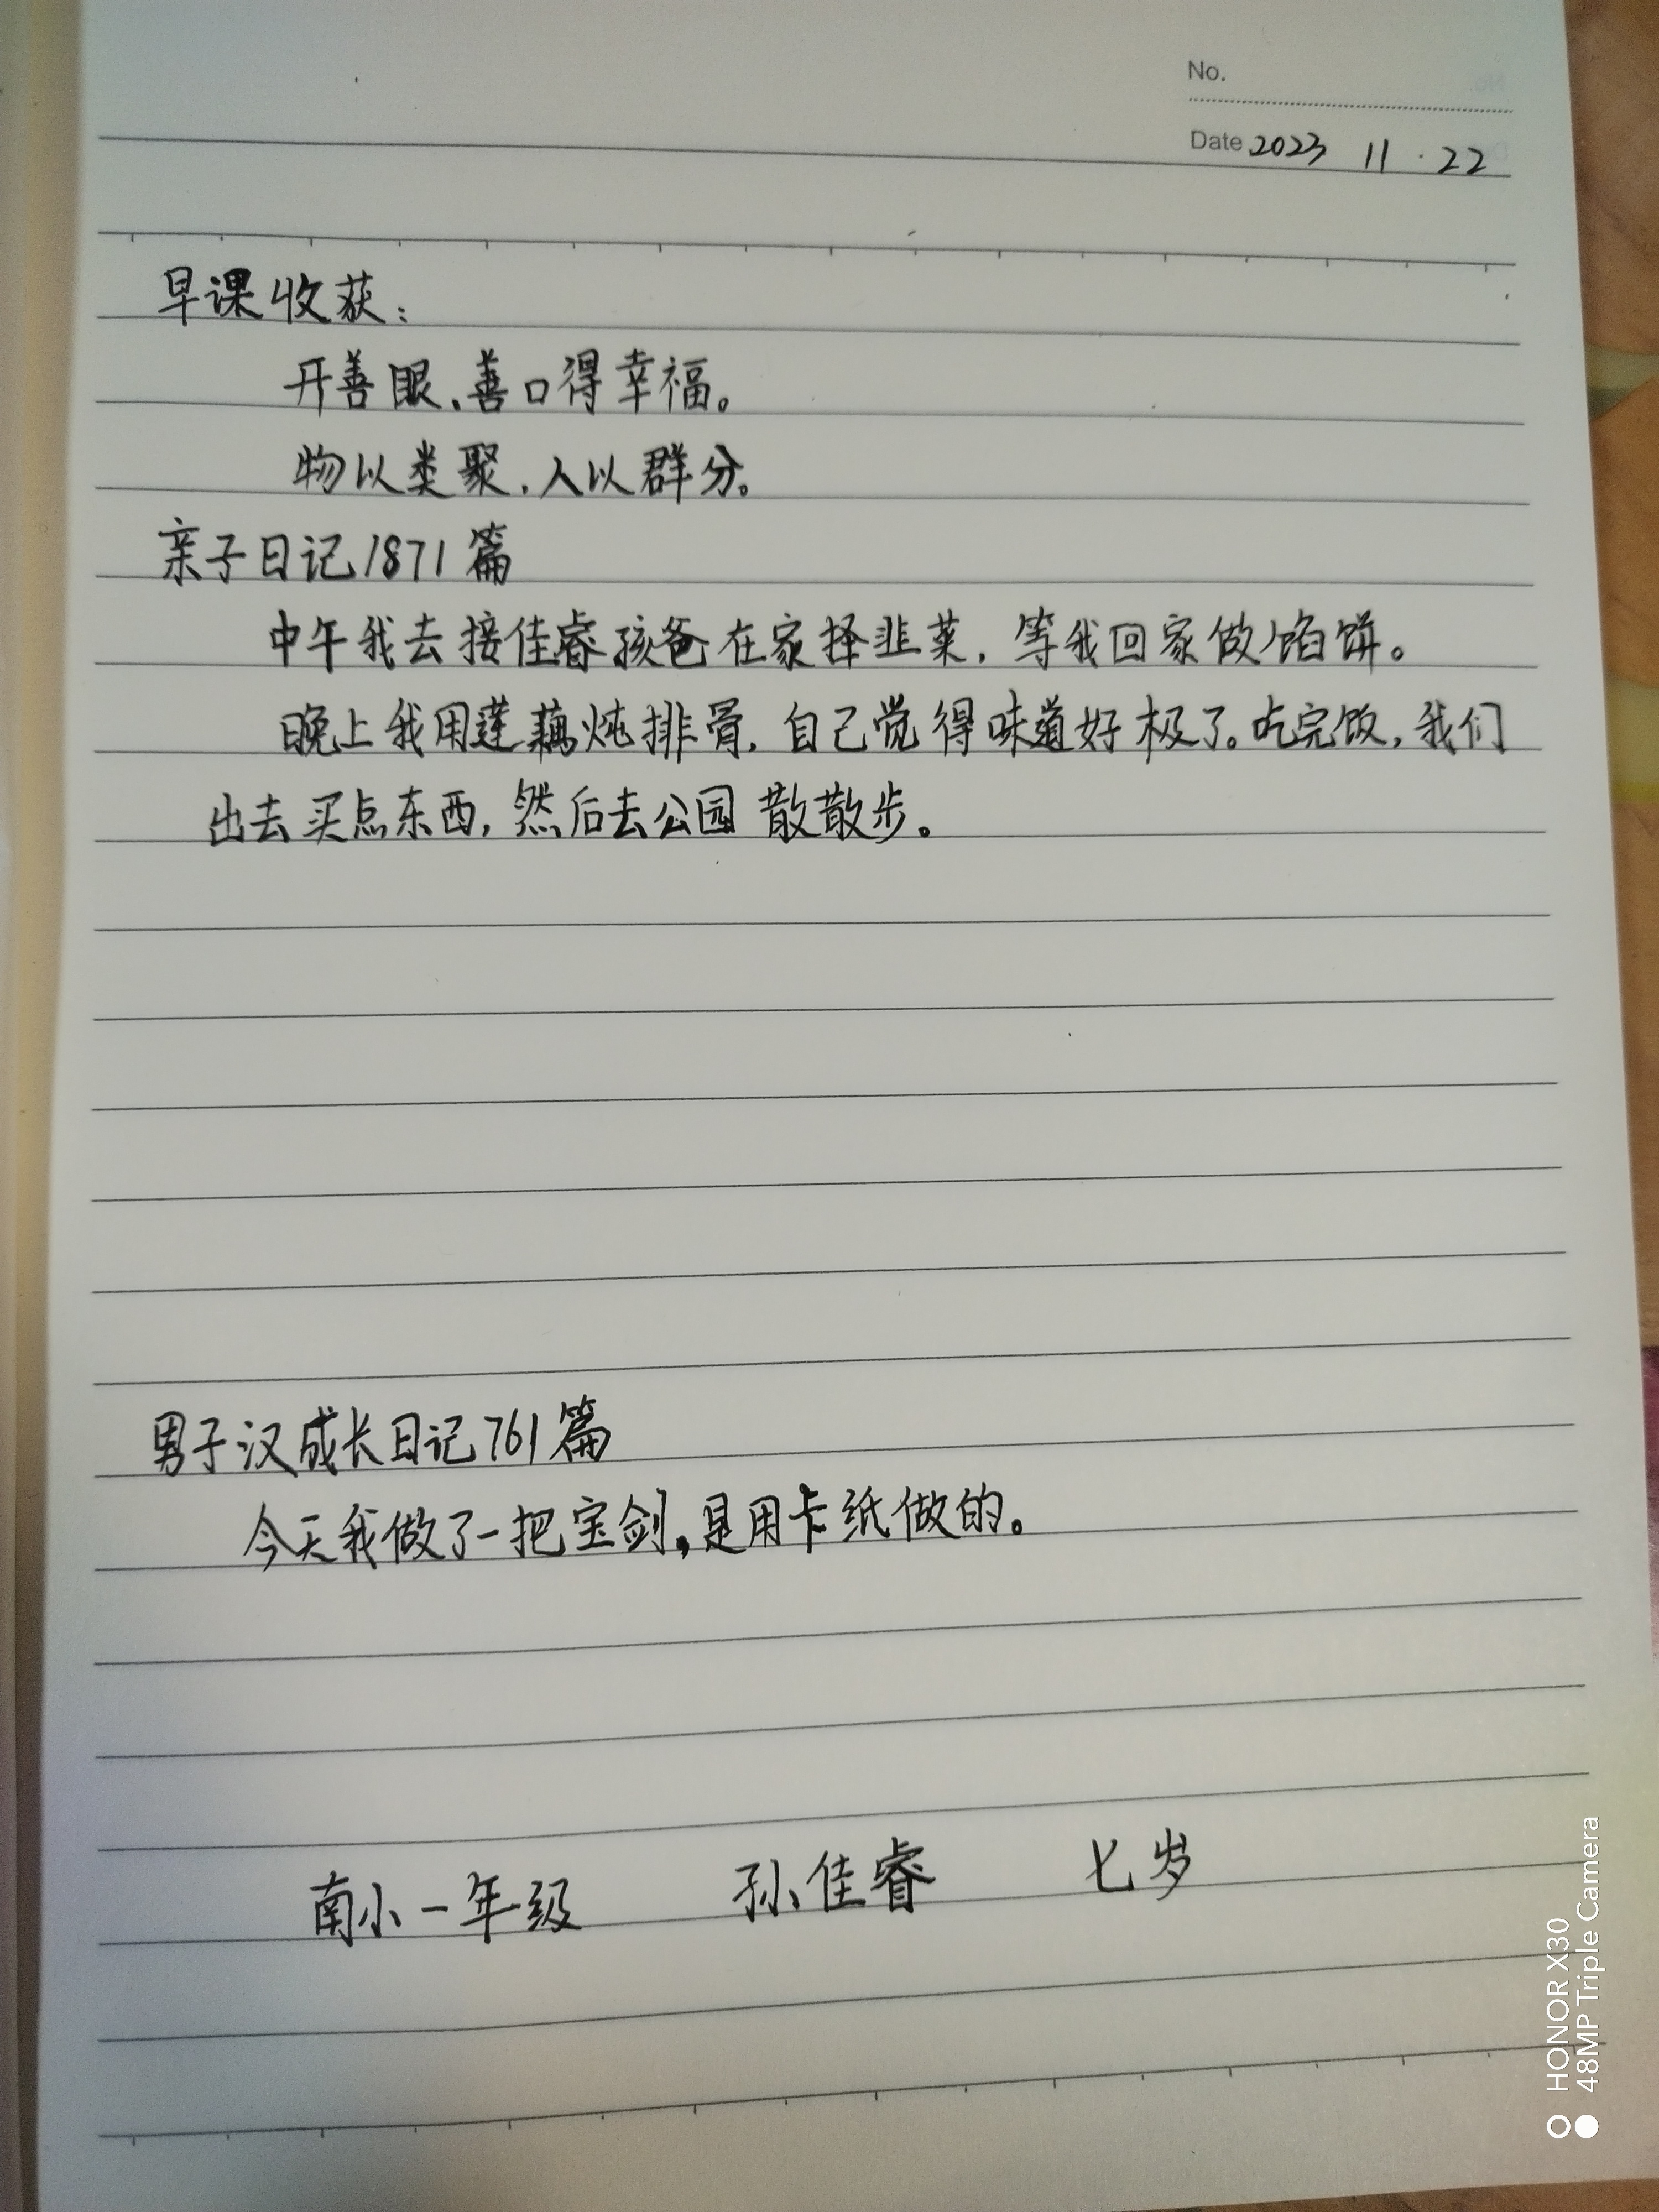 No.
Date 2023 11 · 22
早课收获：
开善眼、善口得幸福。
物以类聚，人以群分。
亲子日记1871篇
中午我去接佳睿孩爸在家择韭菜，等我回家做馅饼。
晚上我用莲藕炖排骨，自己觉得味道好极了。吃完饭，我们
出去买点东西，然后去公园散散步。
男子汉成长日记761篇
今天我做了一把宝剑，是用卡纸做的。
南小一年级 孙佳睿 七岁
HONOR X30
48MP Triple Camera